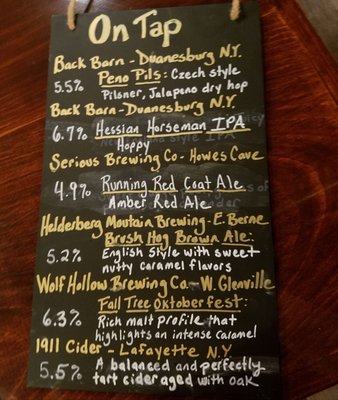 On Tap
Back Barn - Duanesburg N.Y.
Peno Pils: Czech style
5.5% Pilsner, Jalapeno dry hop
Back Barn - Duanesburg N.Y.
6.7% Hessian Horseman IPA
Hoppy
Serious Brewing Co - Howes Cave
4.9% Running Red Coat Ale
Amber Red Ale
Helderberg Moutain Brewing - E. Berne
Brush Hog Brown Ale:
5.2% English Style with sweet
nutty caramel flavors
Wolf Hollow Brewing Co. - W. Glenville
Fall Tree Oktoberfest:
6.3% Rich malt profile that
highlights an intense caramel
1911 Cider - Lafayette N.Y.
5.5% A balanced and perfectly
tart cider aged with oak